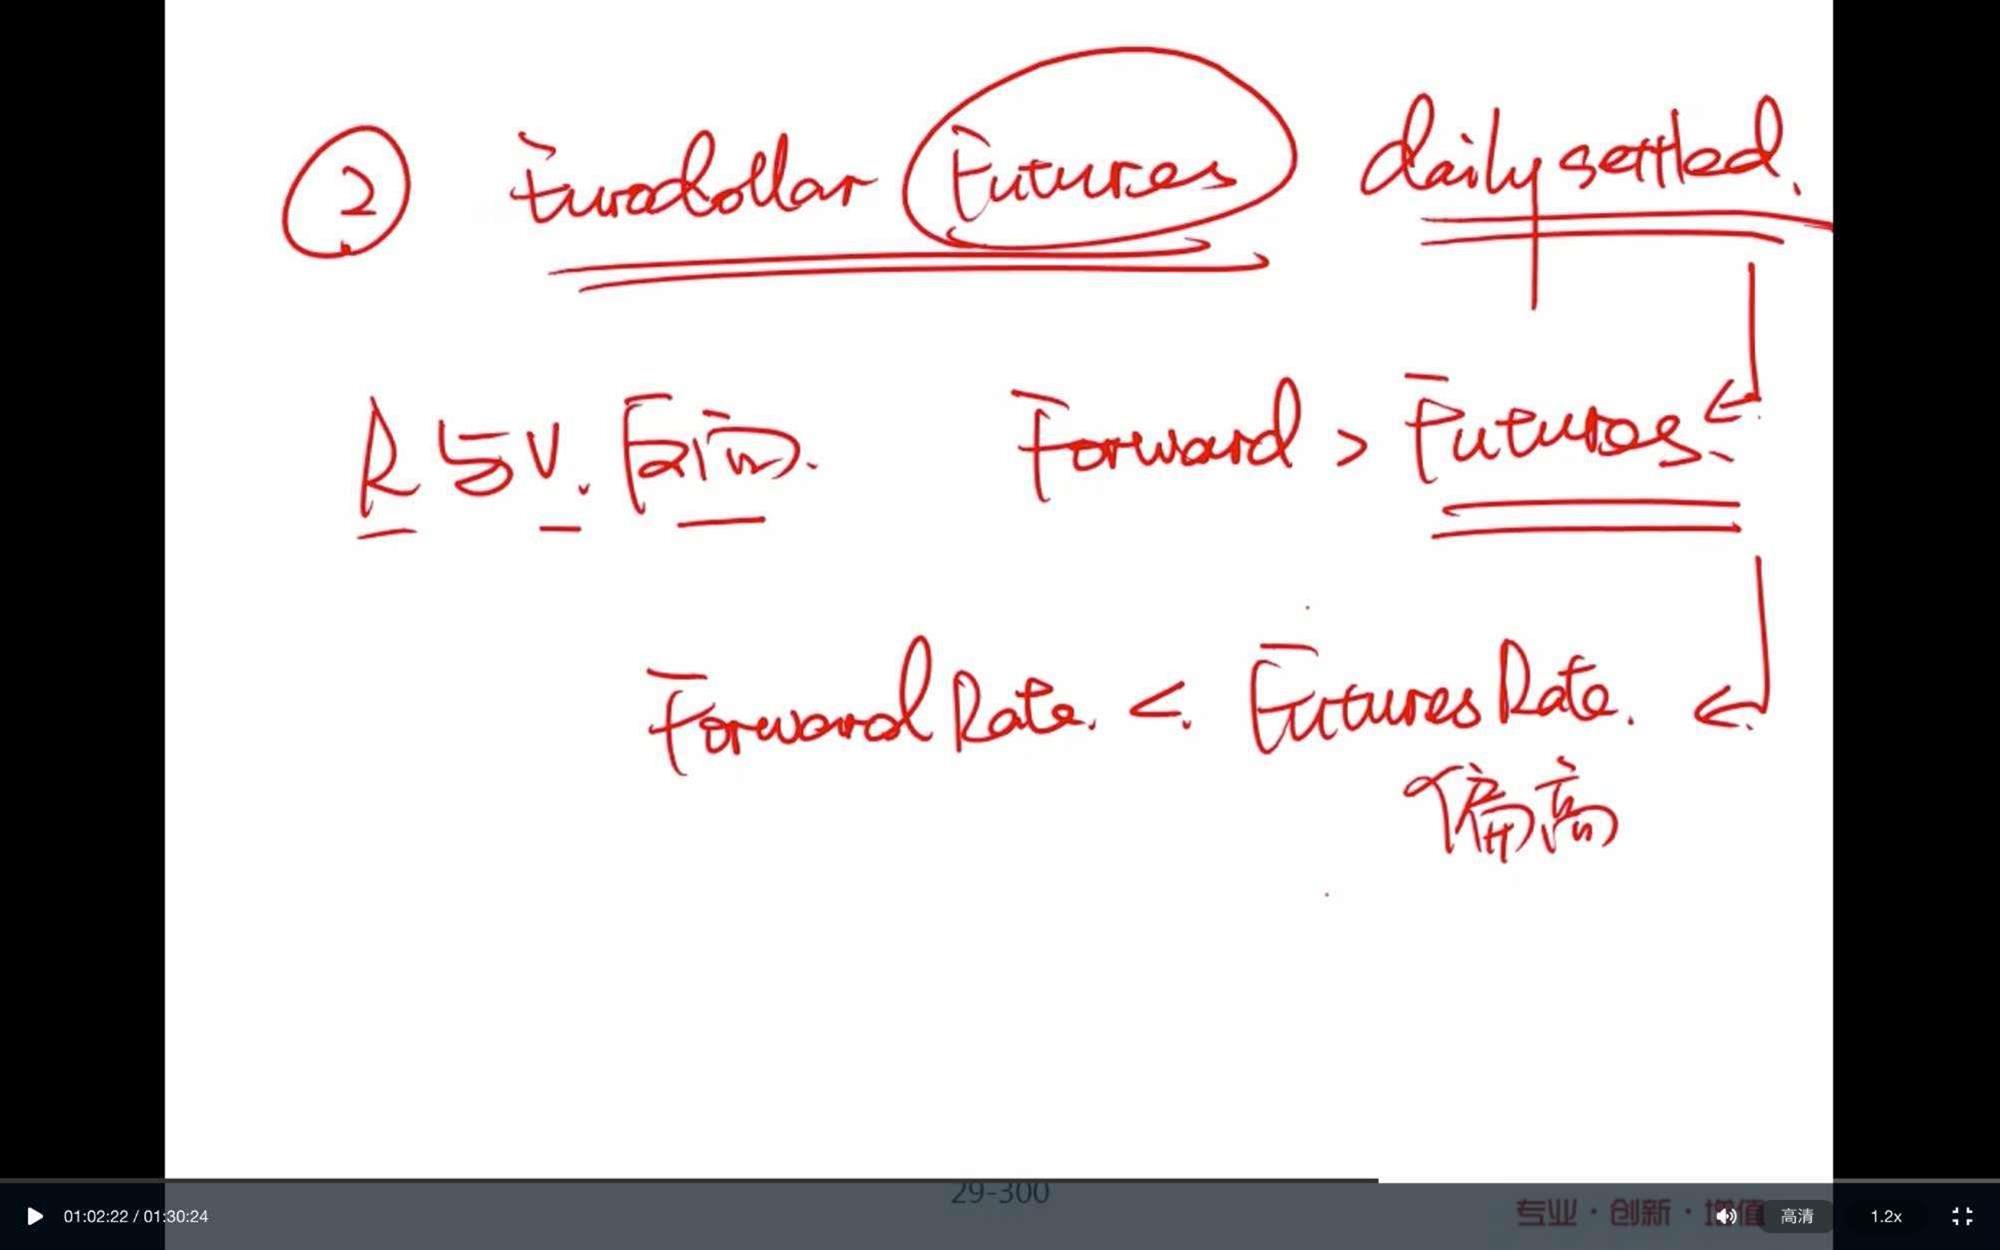 ② Eurodollar Futures daily settled.
R与V.反向. Forward > Futures.
Forward Rate. < Futures Rate.
偏高
29-300
专业·创新·增值
01:02:22 / 01:30:24
高清
1.2x